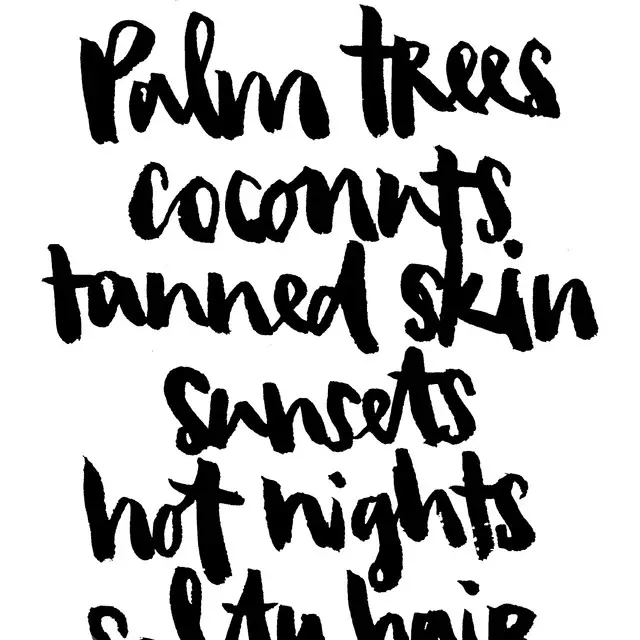 Palm trees
coconuts
tanned skin
sunsets
hot nights
salty hair